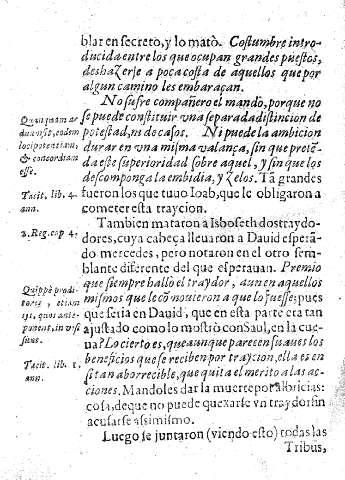 blar en secreto, y lo matò. Costumbre intro-
ducida entre los que ocupan grandes puestos,
deshazerse a poca costa de aquellos que por
algun camino les embaraçan.
No sufre compañero el mando, porque no
se puede constituir vna separada distincion de
potestad, ni de casos. Ni puede la ambicion
durar en vna misma valança, sin que preten-
da este superioridad sobre aquel, y sin que los
descomponga la embidia, y zelos. Tã grandes
fueron los que tuuo Ioab, que le obligaron a
cometer esta traycion.
Quanquam ar
duum sit, eodem
loci potentiam,
& concordiam
esse.
Tacit. lib. 4.
ann.
Tambien mataron a Isboseth dos tray do-
dores, cuya cabeça lleuaron a Dauid esperã-
do mercedes, pero notaron en el otro sem-
blante diferente del que esperauan. Premio
que siempre hallò el traydor, aun en aquellos
mismos que le cõ
2. Reg. cap. 4.
pues
que seria en Dauid, que en esta parte era tan
ajustado como lo mostrò con Saul, en la cue-
ua? Lo cierto es, que aunque parecen suaues los
beneficios que se reciben por traycion, ella es en
si tan aborrecible, que quita el merito a las ac-
ciones. Mandoles dar la muerte por albricias:
cosa, de que no puede quexarse vn traydor sin
acusarse a si mismo.
Quippe prodi-
tores, etiam
ijs, quos ante-
ponunt, in vi
suns.
Tacit. lib. 1.
ann.
Luego se juntaron (viendo esto) todas las
Tribus,